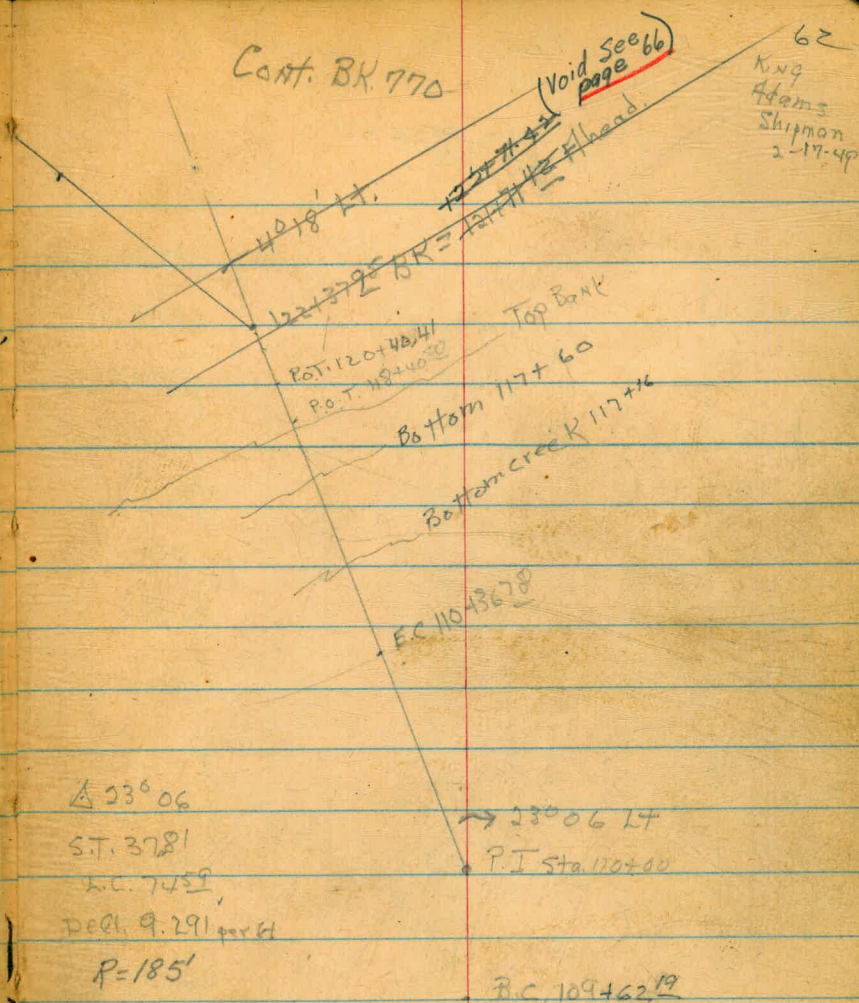 62
Cont. BK. 770
(Void See
page 66)
King
Adams
Shipman
2-17-49
4° 18' Lt.
122+37.95 BK = 121+71.42 Ahead.
P.O.T. 120+40.41
P.O.T. 118+40.50
Top Bank
Bottom 117+60
Bottom creek 117+16
E.C. 110+36.78
Δ 23° 06
S.T. 37.81
L.C. 74.59
Defl. 9.291 per ft
R=185'
23° 06 Lt
P.I Sta. 110+00
B.C. 109+62.19